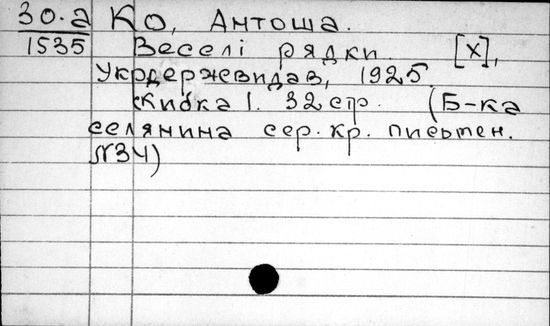 30.а Ко, Антоша.
1535 Веселі рядки. [Х],
Укрдержвидав, 1925.
Книжка 1. 32 стр. (Б-ка
селянина сер. кр. письмен.
№34)